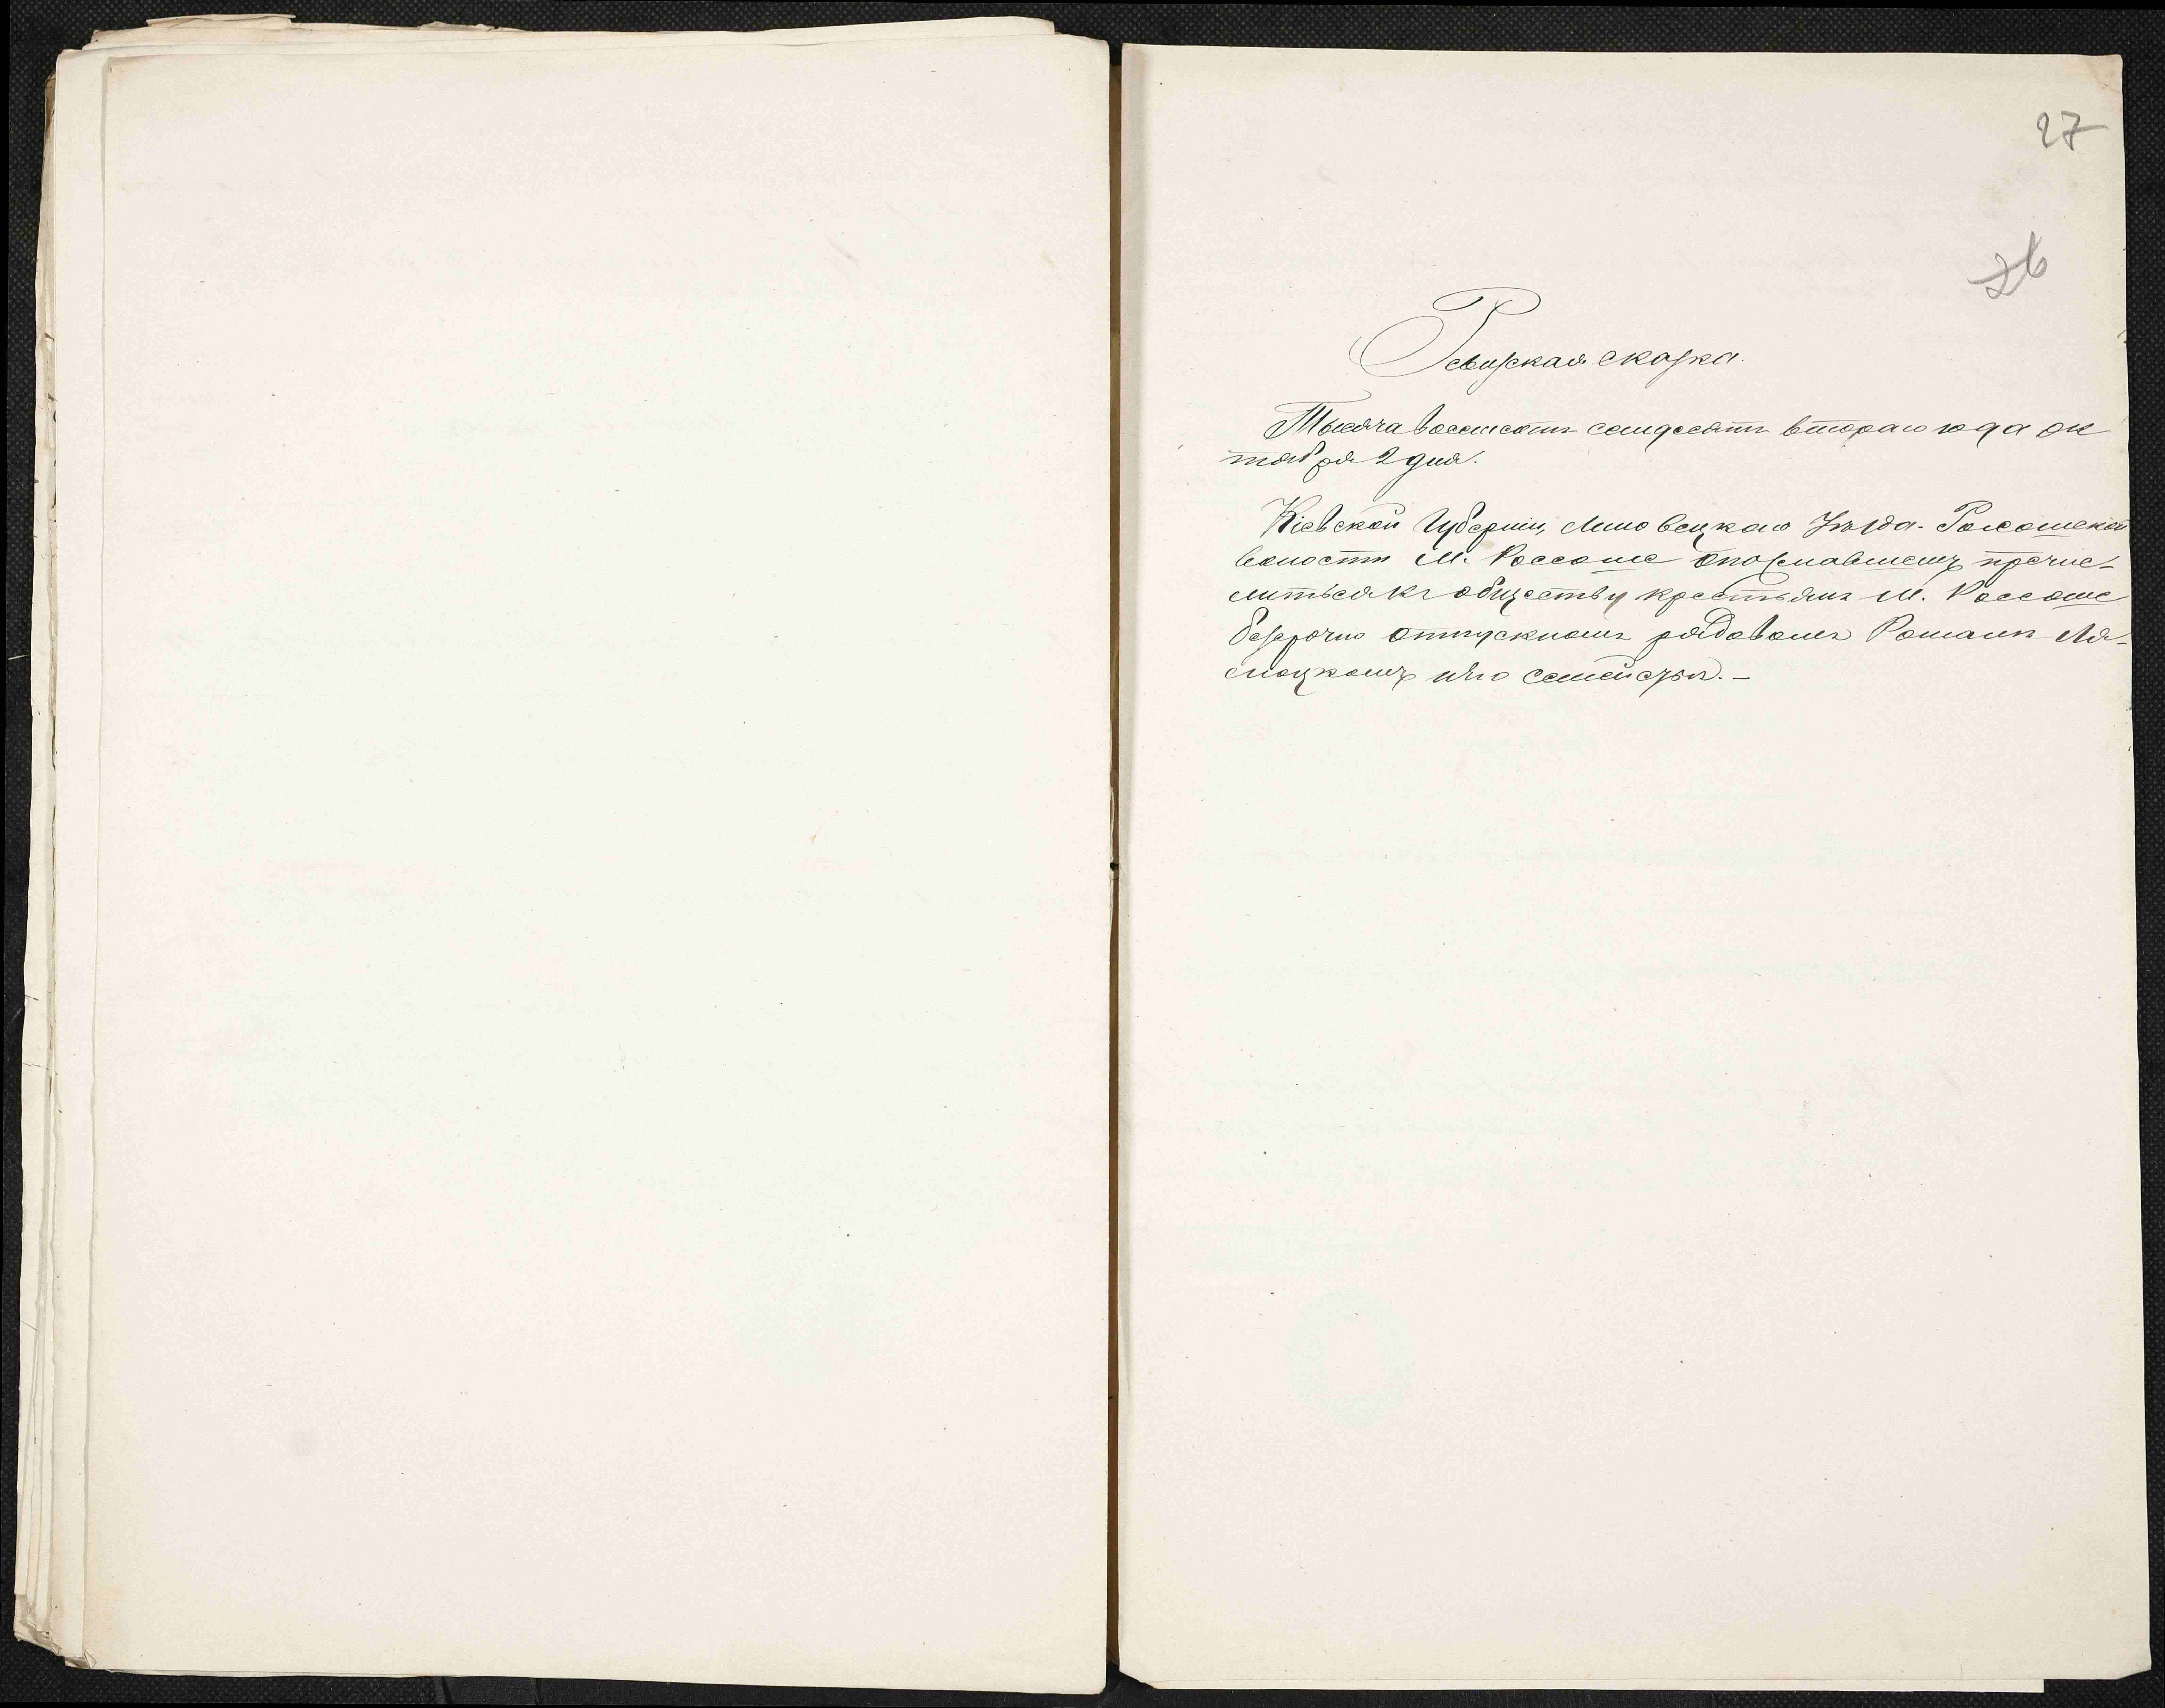 27
26
Ревизская сказка.
Тысяча восемсотъ семдесятъ втораго года ок
тября 2 дня.
Кіевской Губерніи, Липовецкаго Уѣзда. Росошской
волости М. Россоше опожелавшемъ пречис-
литься къ обществу крестьянъ М. Россоше
безсрочно отпускномъ рядовомъ Романѣ Ля-
смоцкомъ иего семейсзвѣ. —